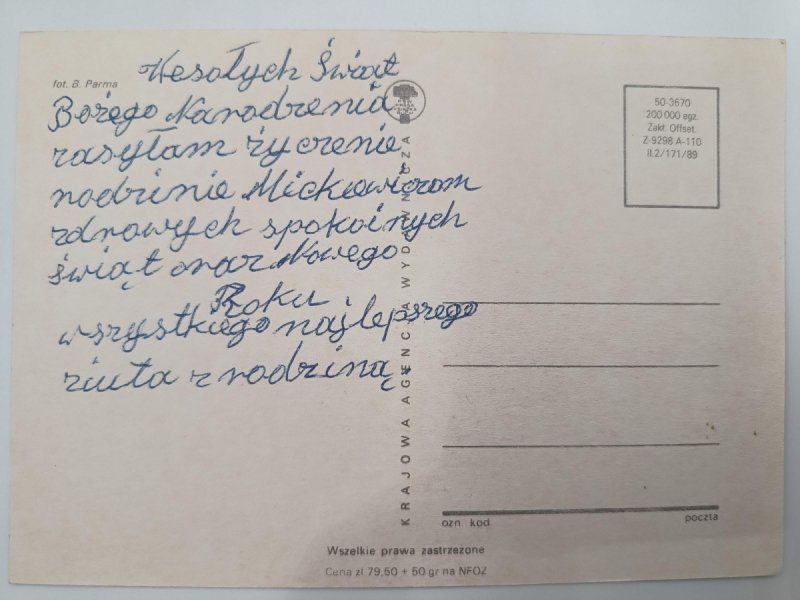 fot. B. Parma
Wesołych Świąt
Bożego Narodzenia
zasyłam życzenie
rodzinie Mickiewiczom
zdrowych spokoinych
świąt oraz Nowego
Roku
wszystkiego najlepszego
ziuta z rodziną.
KRAJOWA AGENCJA WYDAWNICZA
50-3670
200 000 egz.
Zakł. Offset.
Z-9298 A-110
II.2/171/89
ozn kod
poczta
Wszelkie prawa zastrzeżone
Cena zł 79,50 + 50 gr na NFOZ